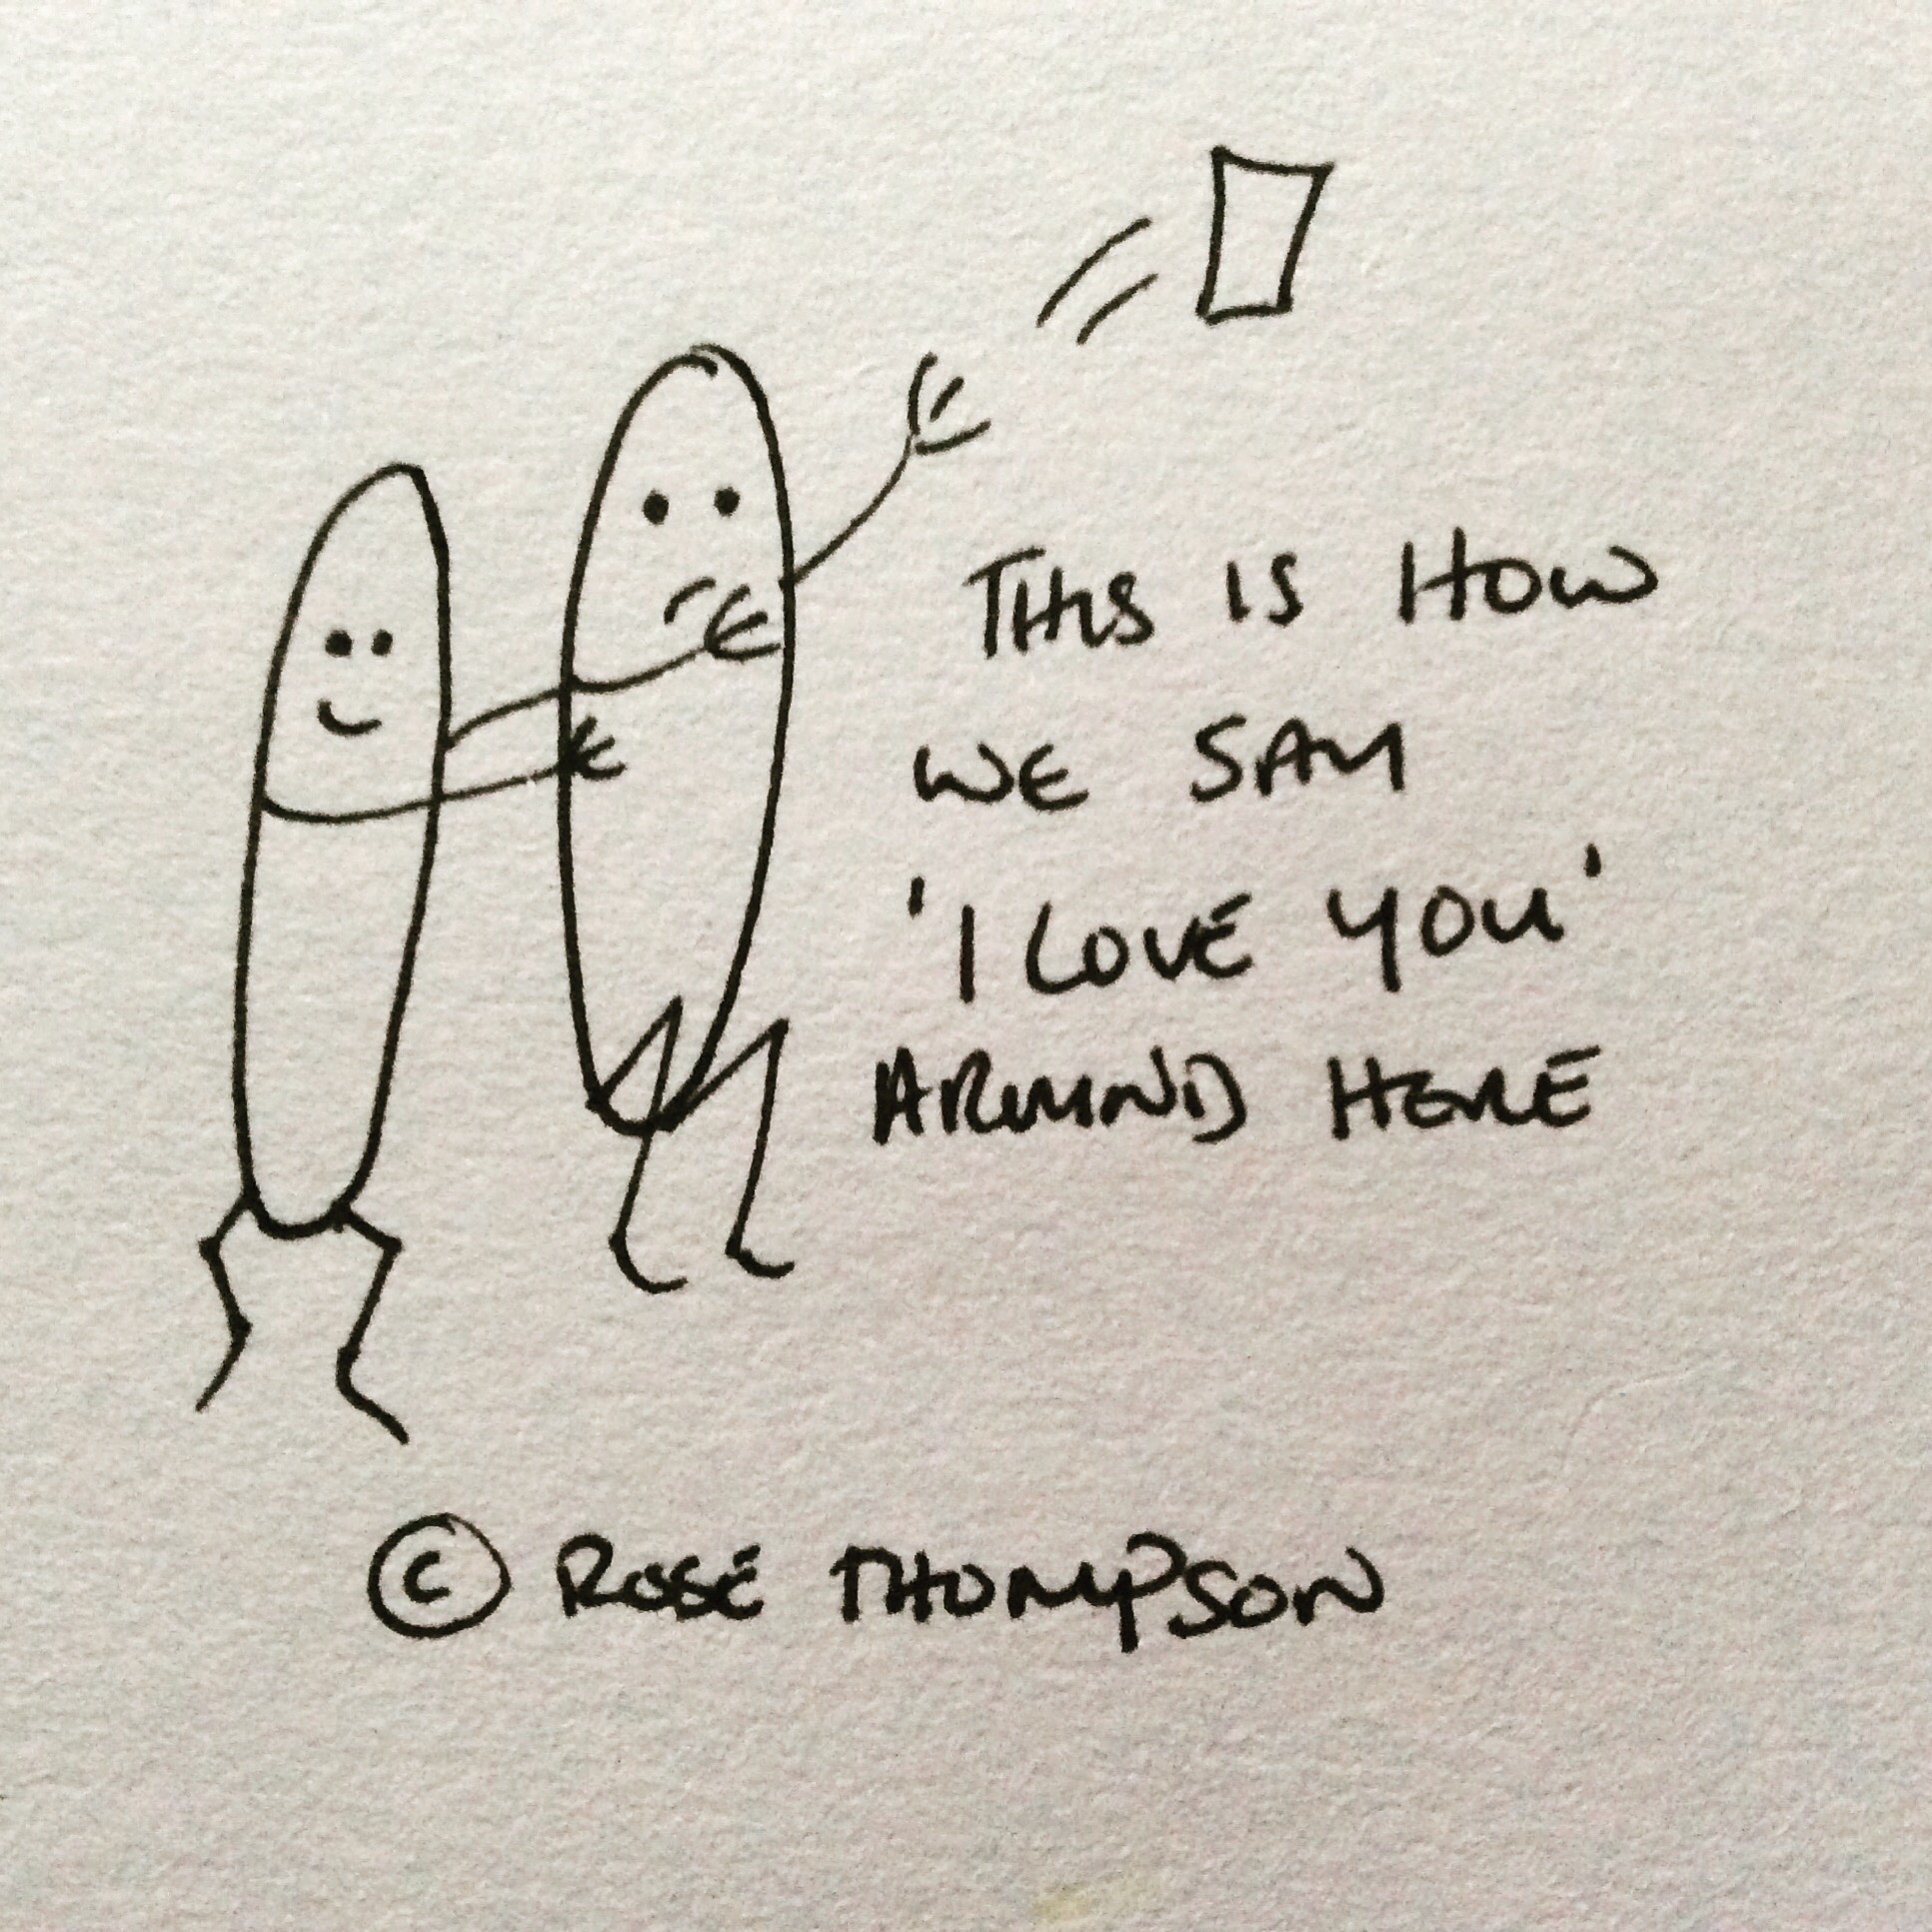 THIS IS HOW
WE SAY
'I LOVE YOU'
AROUND HERE
© ROSE THOMPSON